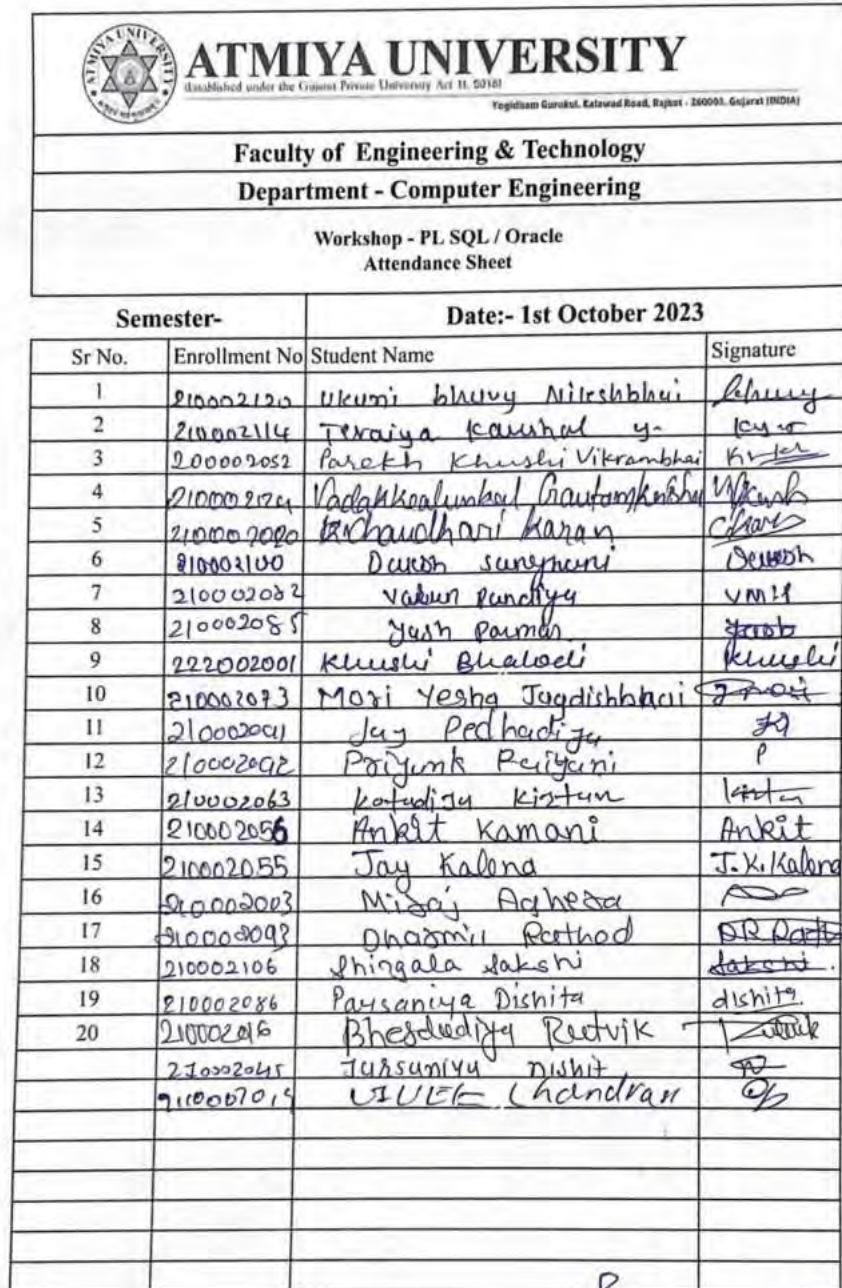 ATMIYA UNIVERSITY
(Established under the Gujarat Private University Act 11, 2018)
Yogidham Gurukul, Kalawad Road, Rajkot - 360005, Gujarat (INDIA)
Faculty of Engineering & Technology
Department - Computer Engineering
Workshop - PL SQL / Oracle
Attendance Sheet
Semester- Date:- 1st October 2023
Sr No. Enrollment No Student Name Signature
1 210002120 Ukani bhuvy Nileshbhai
2 210002114 Teraiya Kaushal y-
3 200002052 Parekh Khushi Vikrambhai
4
5 Chaudhari Karan
6 210002100 Devesh
7 210002082 Pandiya VMP
8 210002085 Yash Parmar
9 222002001 Khushi Bhalodi Khushi
10 210002073 Mori Yesha Jagdishbhai
11 210002091 Jay Pedhadiya
12 210002092 Priyank P
13 210002063 Kirtan
14 210002056 Ankit Kamani Ankit
15 210002055 Jay Kalena J.K.Kalena
16 210002003 Miraj Aghera
17 Dharmil Rathod
18 210002106 Shingala Sakshi Sakshi.
19 210002086 Parsaniya Dishita dishita
20 210002016 Bhesdadiya Rutvik
210002045 nishit
Chandran